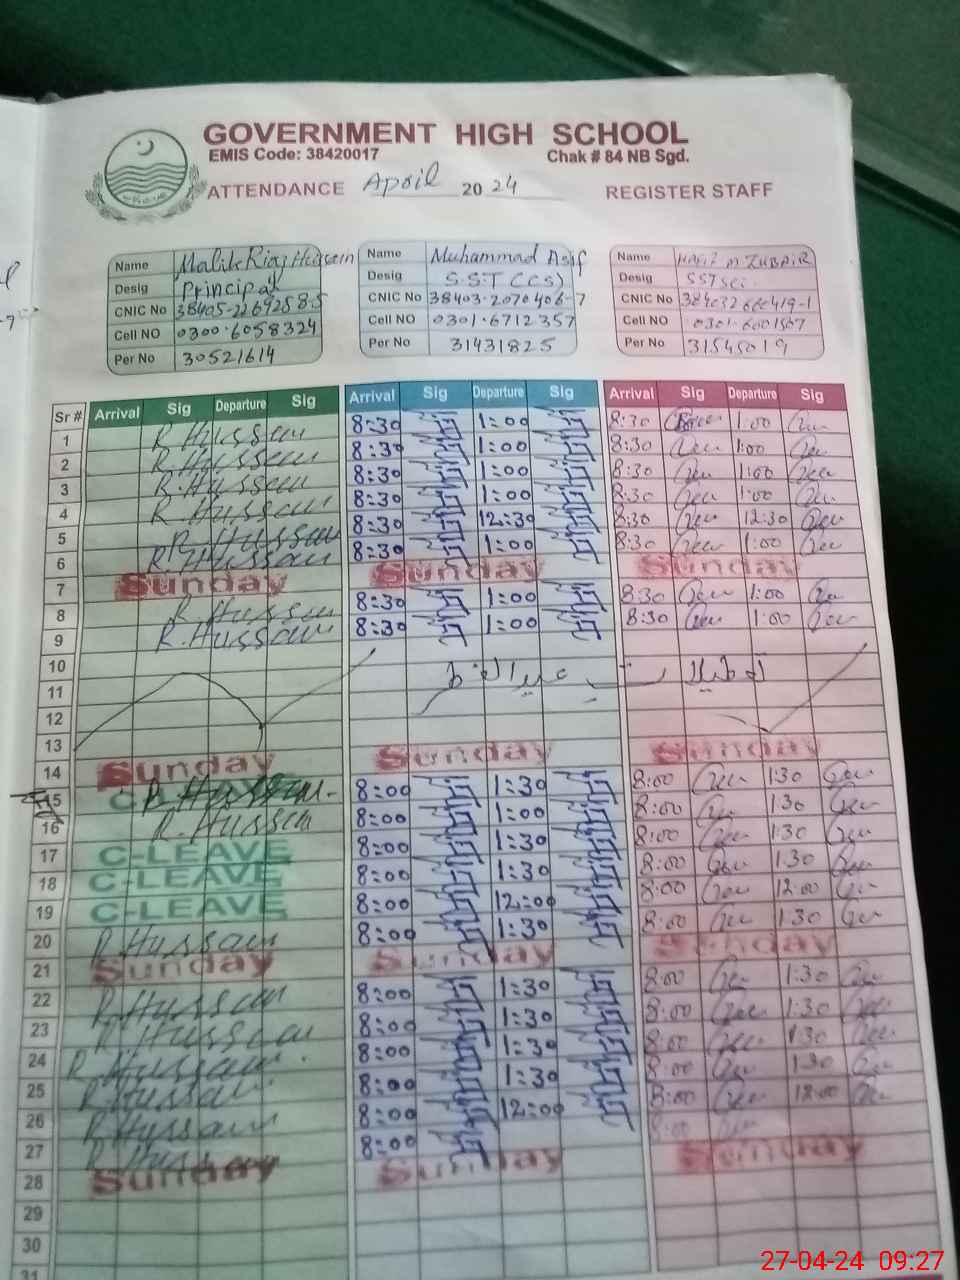 GOVERNMENT HIGH SCHOOL
EMIS Code: 38420017 Chak # 84 NB Sgd.
ATTENDANCE April 2024 REGISTER STAFF
Name Malik Riaz Hussain Name Muhammad Asif Name HAFIZ M ZUBAIR
Desig Principal Desig S.S.T (CS) Desig SST Sci.
CNIC No 38405-2269258-5 CNIC No 38403-2070406-7 CNIC No
Cell NO 0300-6058324 Cell NO 0301-6712357 Cell NO 0301-6001507
Per No 30521614 Per No 31431825 Per No 31545019
Sr # Arrival Sig Departure Sig Arrival Sig Departure Sig Arrival Sig Departure Sig
1 R.Hussain 8:30 1:00 8:30 1:00
2 R.Hussain 8:30 1:00 8:30 1:00
3 R.Hussain 8:30 1:00 8:30 1:00
4 R.Hussain 8:30 1:00 8:30 1:00
5 R.Hussain 8:30 12:30 8:30 12:30
6 R.Hussain 8:30 1:00 8:30 1:00
7 Sunday Sunday Sunday
8 R.Hussain 8:30 1:00 8:30 1:00
9 R.Hussain 8:30 1:00 8:30 1:00
10
11 عید الفطر
12
13
14 Sunday Sunday Sunday
15 C-LEAVE R.Hussain 8:00 1:30 8:00 1:30
16 R.Hussain 8:00 1:00 8:00 1:30
17 C-LEAVE 8:00 1:30 8:00 1:30
18 C-LEAVE 8:00 1:30 8:00 1:30
19 C-LEAVE 8:00 12:00 8:00 12:00
20 R.Hussain 8:00 1:30 8:00 1:30
21 Sunday Sunday Sunday
22 R.Hussain 8:00 1:30 8:00 1:30
23 R.Hussain 8:00 1:30 8:00 1:30
24 R.Hussain 8:00 1:30 8:00 1:30
25 R.Hussain 8:00 1:30 8:00 1:30
26 R.Hussain 8:00 12:00 8:00 12:00
27 R.Hussain 8:00 8:00
28 Sunday Sunday Sunday
29
30
31
27-04-24 09:27